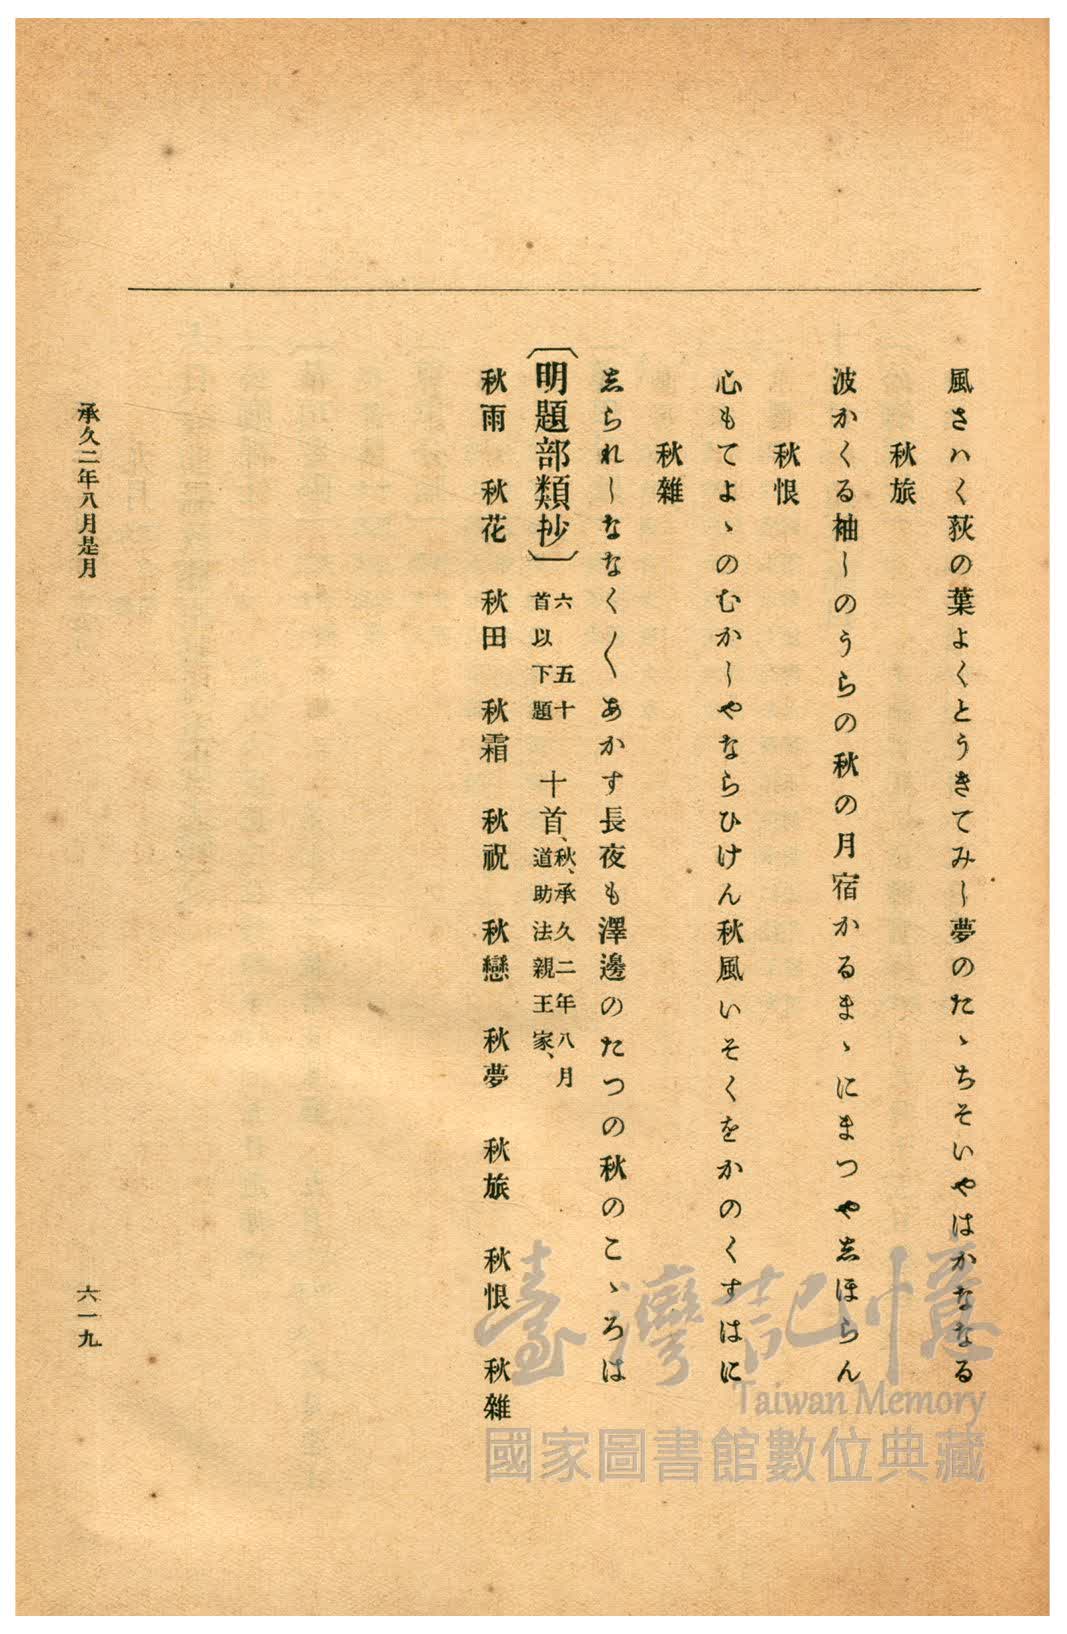 風さハく荻の葉よくとうきてみし夢のたゝちそいやはかななる
秋旅
波かくる袖しのうらの秋の月宿かるまゝにまつや志ほらん
秋恨
心もてよゝのむかしやならひけん秋風いそくをかのくすはに
秋雜
志られしななく〱あかす長夜も澤邊のたつの秋のこゝろは
〔明題部類抄〕六 五十首以下題 十首、秋、承久二年八月道助法親王家、
秋雨 秋花 秋田 秋霜 秋祝 秋戀 秋夢 秋旅 秋恨 秋雜
承久二年八月是月
六一九
臺灣記憶
Taiwan Memory
國家圖書館數位典藏